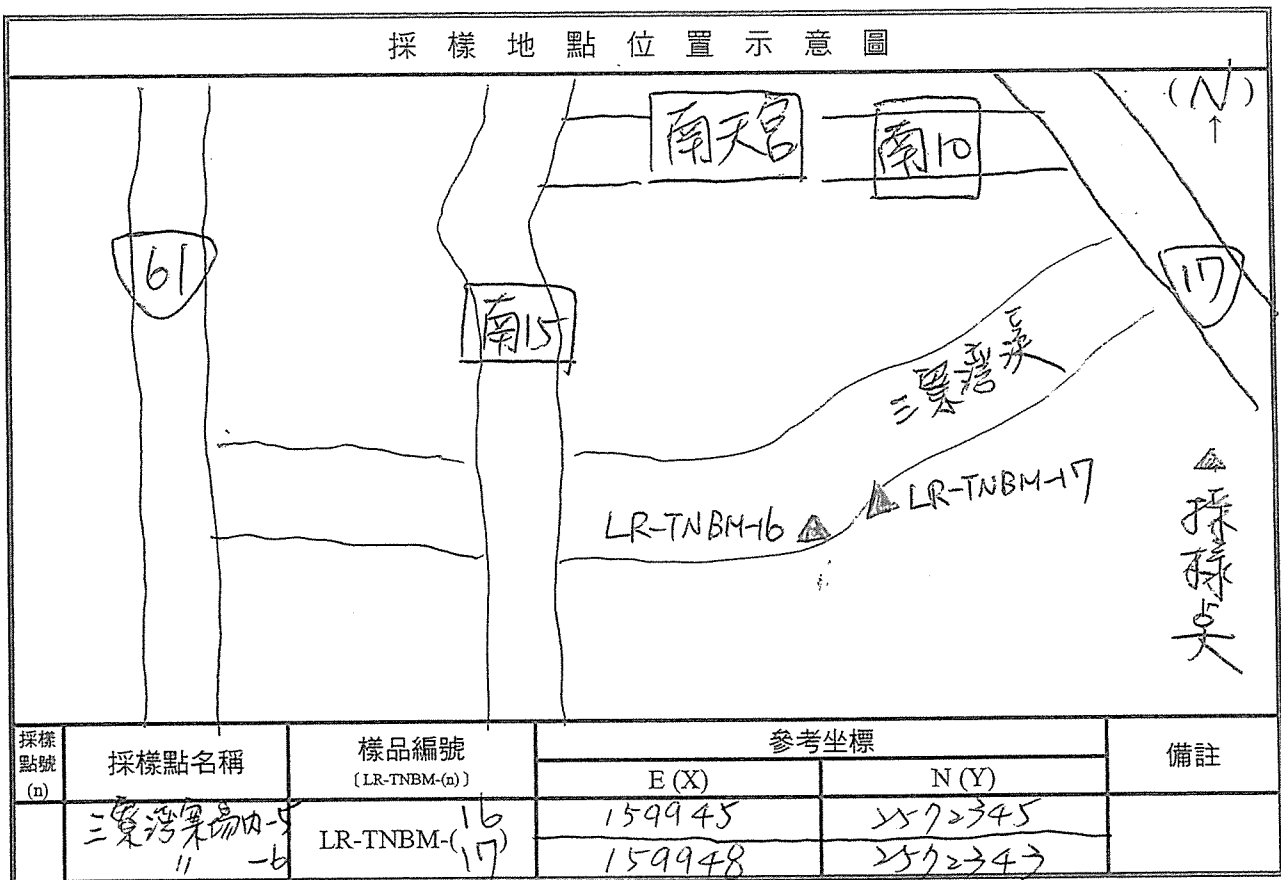 採樣地點位置示意圖
(N)
↑
南天宮
南10
61
17
南15
三寮灣溪
LR-TNBM-17
LR-TNBM-16
▲採樣点
採樣點號(n) 採樣點名稱 樣品編號〔LR-TNBM-(n)〕 參考坐標 備註
E (X) N (Y)
三寮灣寮場內-5 LR-TNBM-(16 159945 2572345
〃 -6 17) 159948 2572343